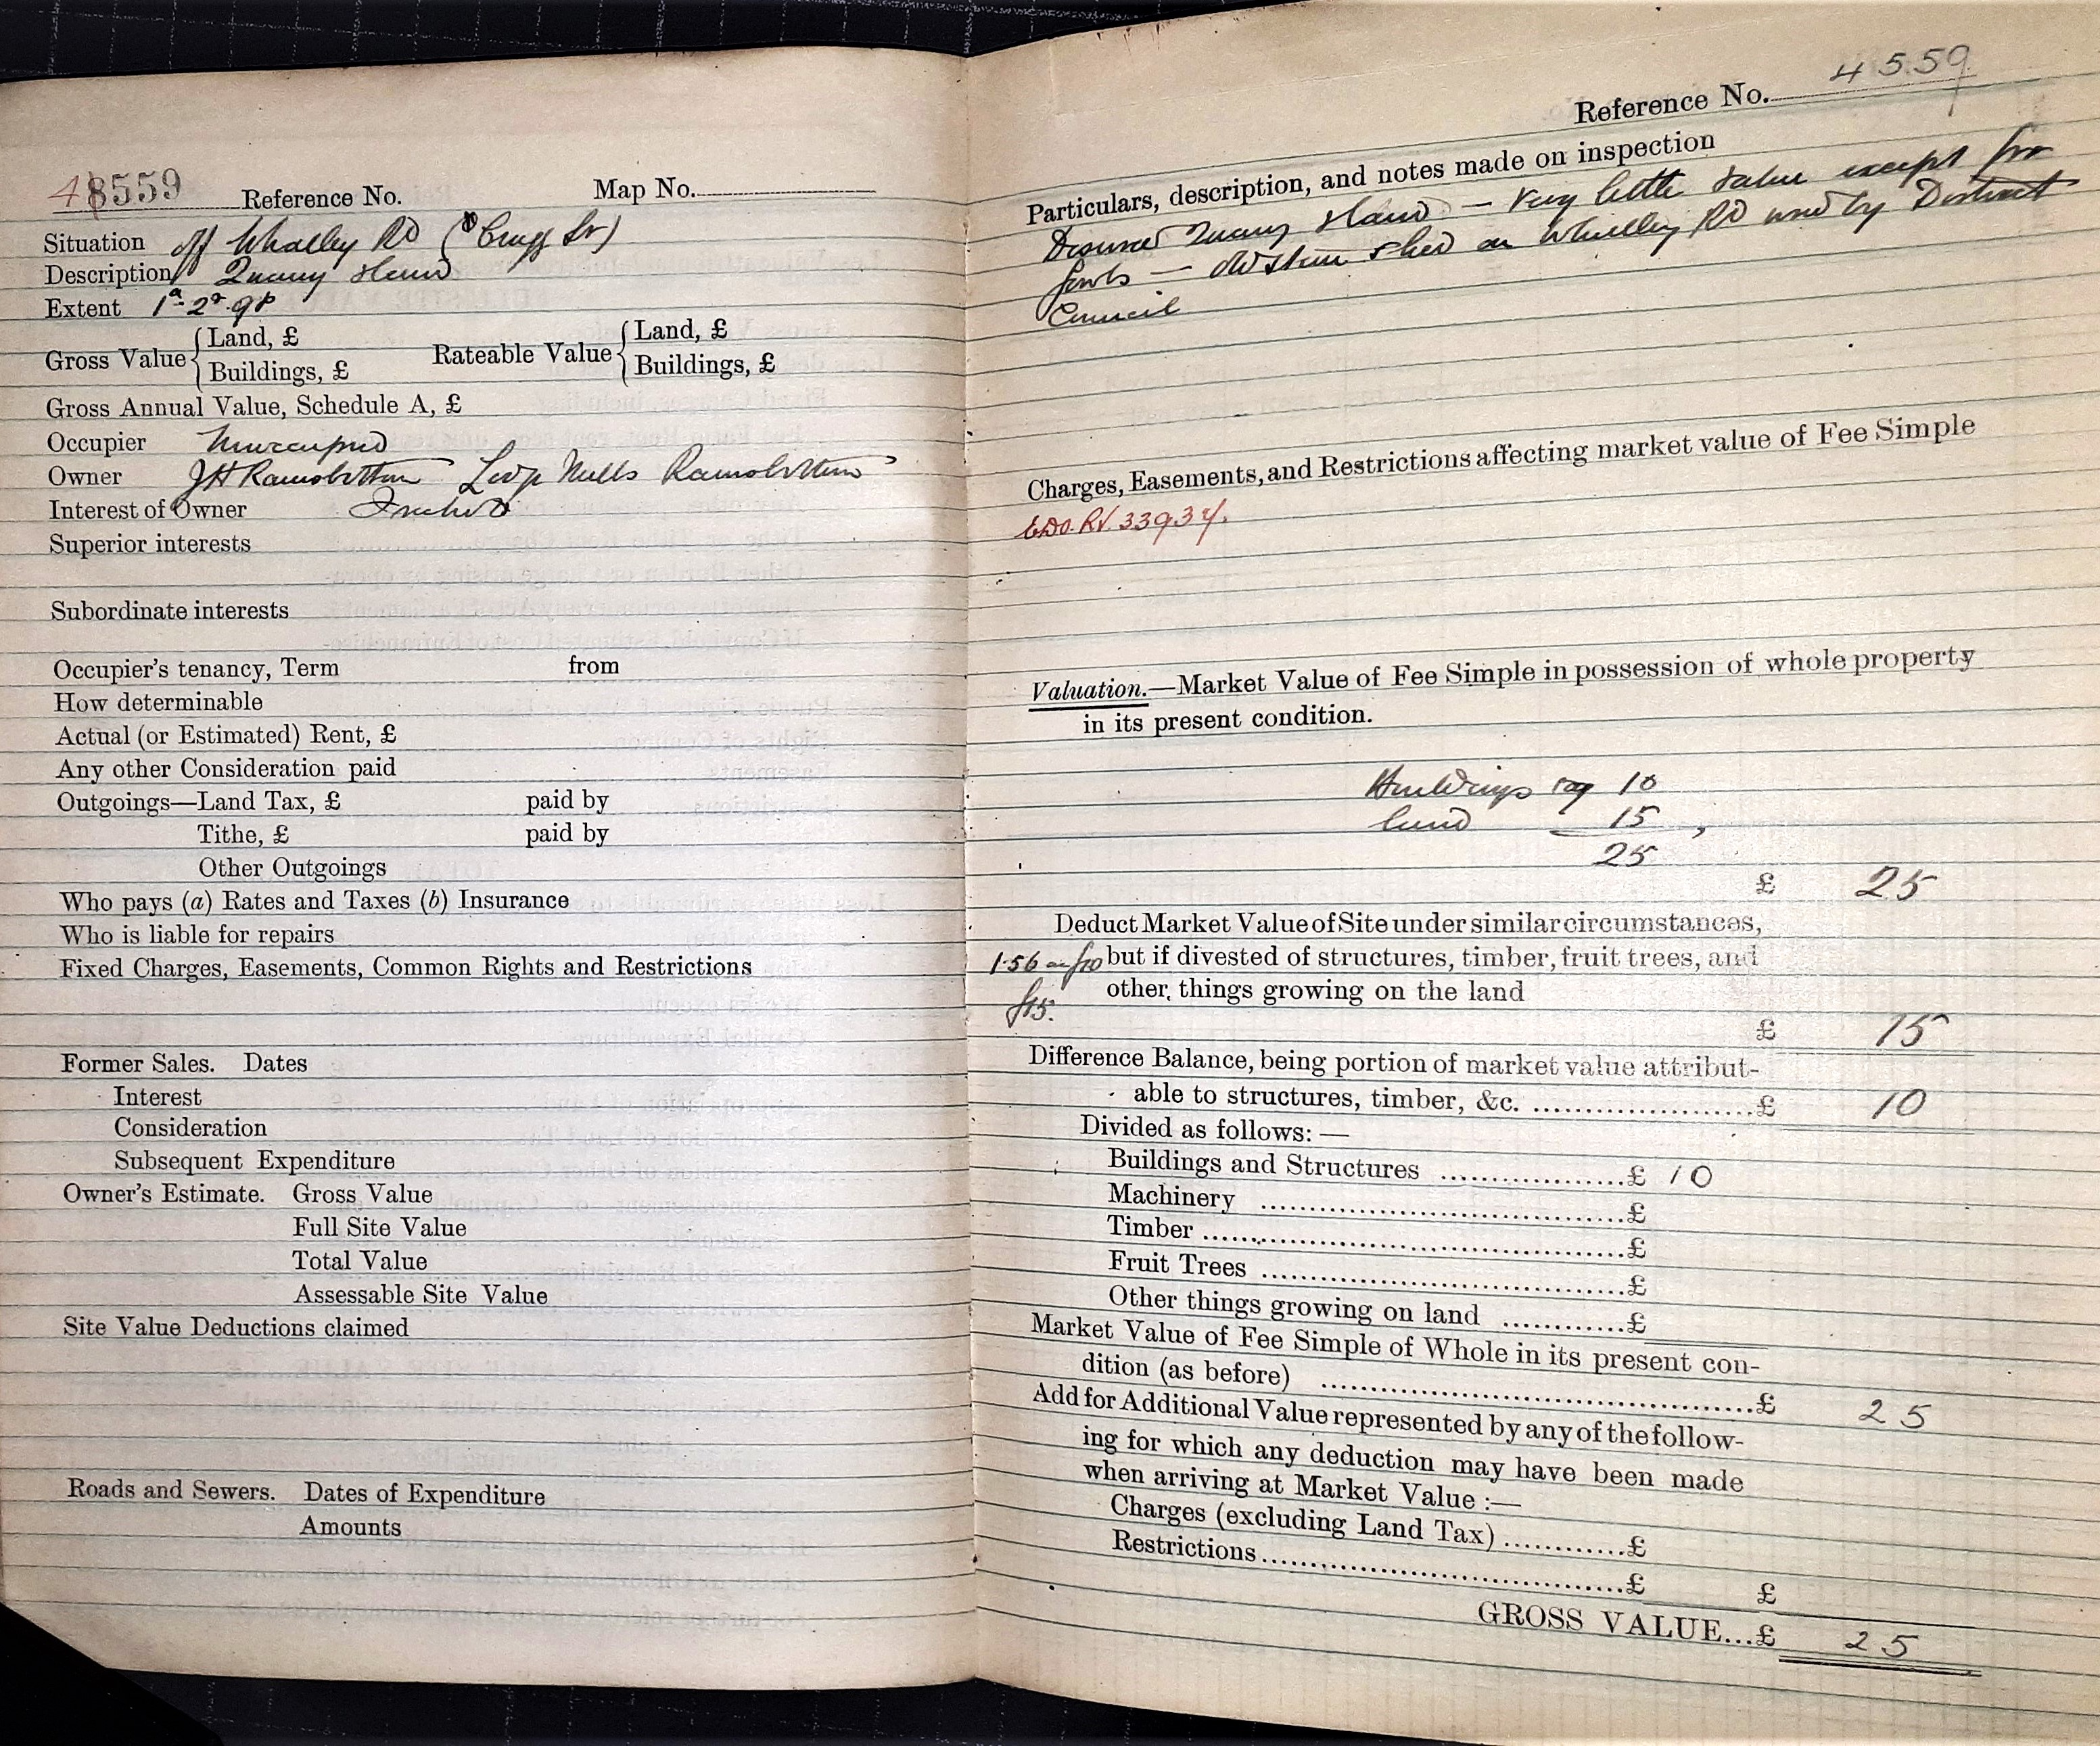 48559 Reference No. Map No.
Situation off Whalley Rd (Cragg St)
Description Quarry Land
Extent 1a-2r-9p
Gross Value { Land, £ Rateable Value { Land, £
Buildings, £ Buildings, £
Gross Annual Value, Schedule A, £
Occupier Unoccupied
Owner JH Ramsbottom Mills Ramsbottom
Interest of Owner Freehold
Superior interests
Subordinate interests
Occupier's tenancy, Term from
How determinable
Actual (or Estimated) Rent, £
Any other Consideration paid
Outgoings—Land Tax, £ paid by
Tithe, £ paid by
Other Outgoings
Who pays (a) Rates and Taxes (b) Insurance
Who is liable for repairs
Fixed Charges, Easements, Common Rights and Restrictions
Former Sales. Dates
Interest
Consideration
Subsequent Expenditure
Owner's Estimate. Gross Value
Full Site Value
Total Value
Assessable Site Value
Site Value Deductions claimed
Roads and Sewers. Dates of Expenditure
Amounts
Reference No. 4559
Particulars, description, and notes made on inspection
Disused Quarry Land — very little value except for
fowls — old stone shed on Whalley Rd used by District
Council
Charges, Easements, and Restrictions affecting market value of Fee Simple
Valuation.—Market Value of Fee Simple in possession of whole property
in its present condition.
Buildings say 10
land 15
25
£ 25
Deduct Market Value of Site under similar circumstances,
1.56 £10 but if divested of structures, timber, fruit trees, and
£15. other things growing on the land
£ 15
Difference Balance, being portion of market value attribut-
able to structures, timber, &c. ........................£ 10
Divided as follows: —
Buildings and Structures ....................£ 10
Machinery ........................................£
Timber ................................................£
Fruit Trees ........................................£
Other things growing on land ............£
Market Value of Fee Simple of Whole in its present con-
dition (as before) ................................................£ 25
Add for Additional Value represented by any of the follow-
ing for which any deduction may have been made
when arriving at Market Value :—
Charges (excluding Land Tax) ............£
Restrictions ........................................£ £
GROSS VALUE...£ 25